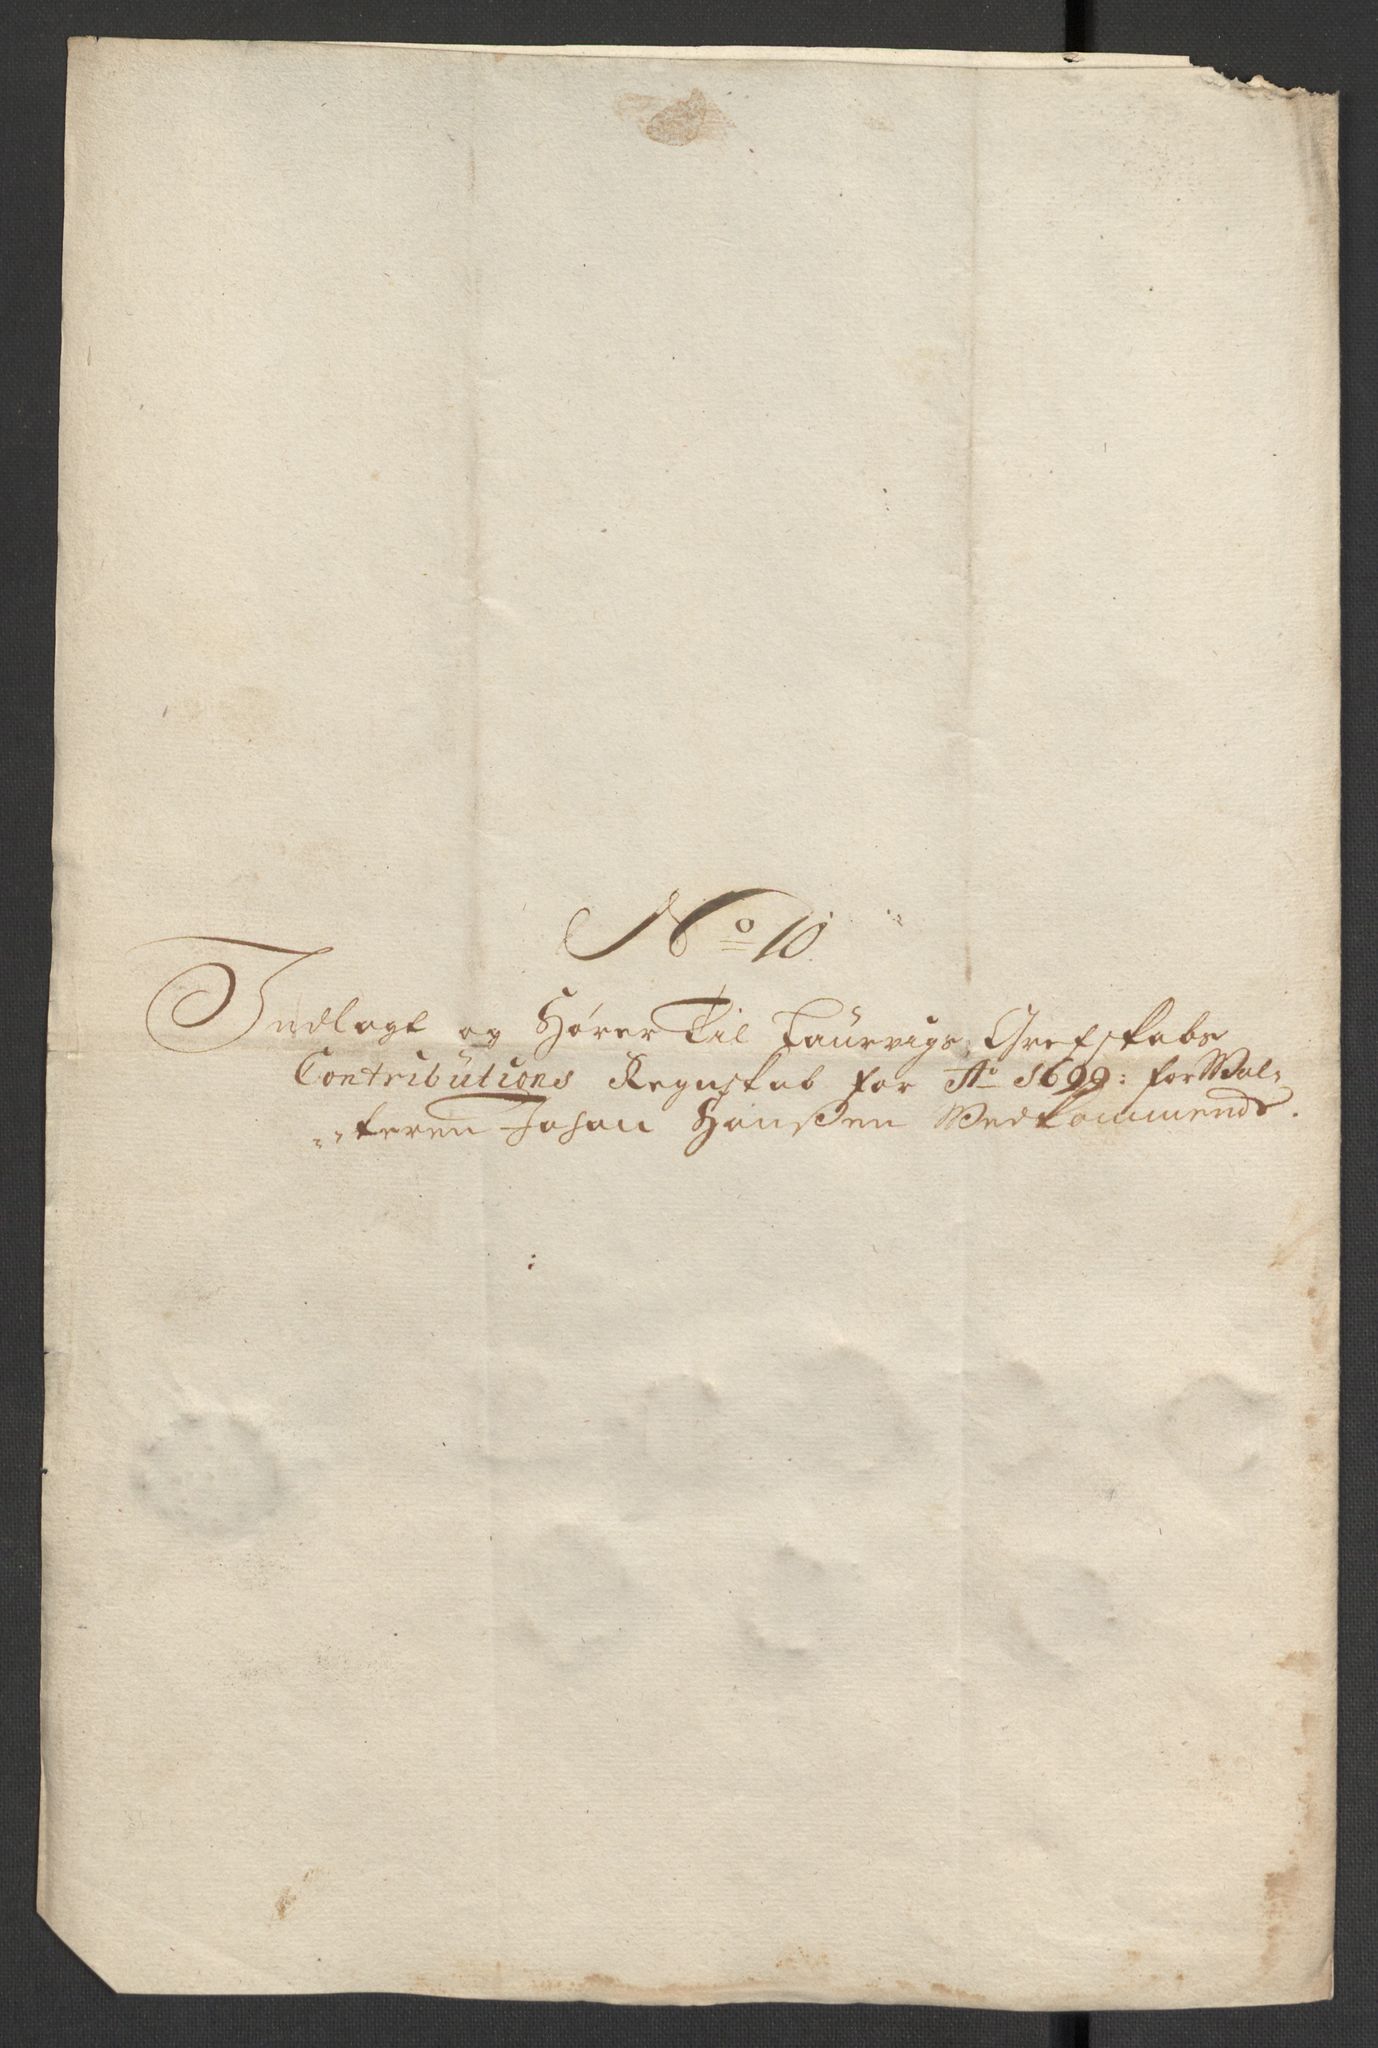 No 10
Indlagt og Hører Til Laurvigs Grefskabs
Contributions Regnskab for Ao 1699: forWal-
-teren Johan Hanßen Vedkommende.